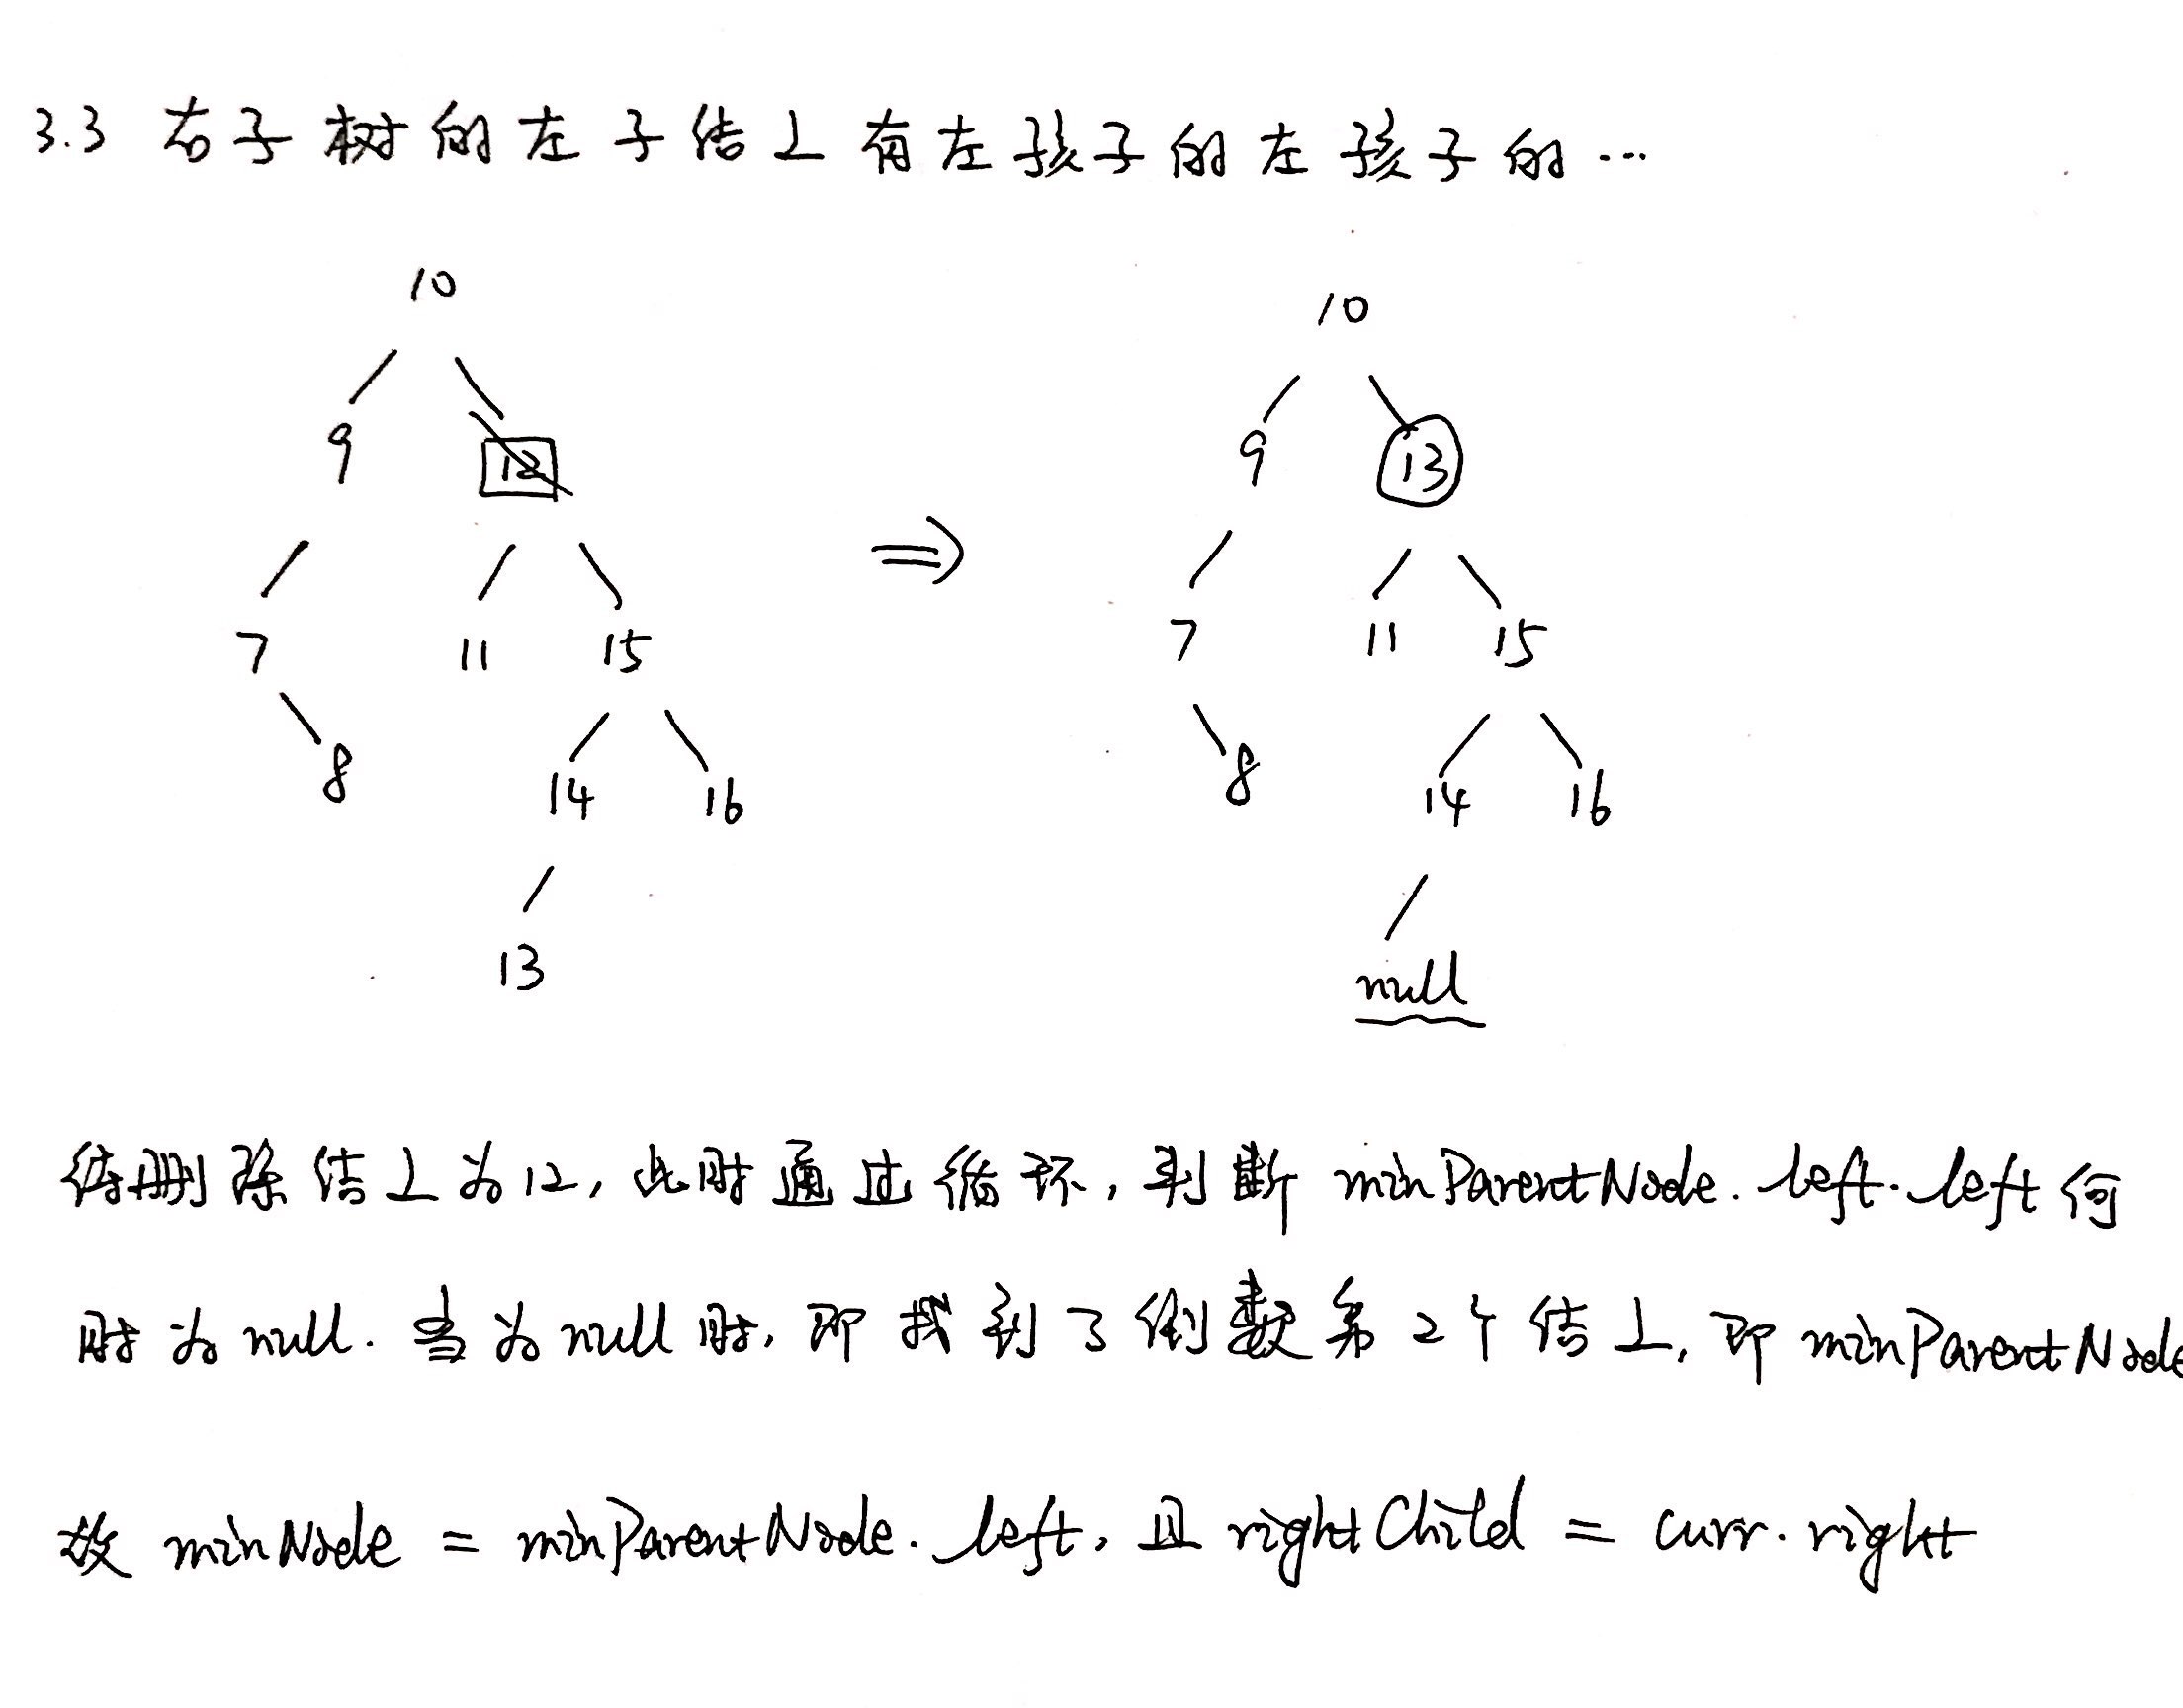 3.3 右子树的左子结点有左孩子的左孩子的…
10
10
9
12
9
13
7
11
15
7
11
15
8
14
16
8
14
16
13
null
待删除结点为12, 此时通过循环, 判断 minParentNode.left.left 何
时为null. 当为null时, 即找到了倒数第2个结点, 即minParentNode
故 minNode = minParentNode.left, 且 rightChild = curr.right